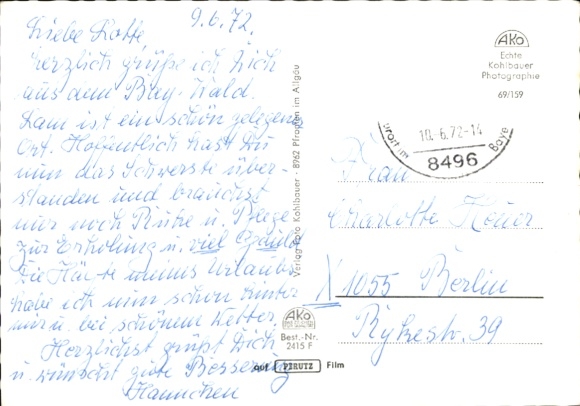 9.6.72.
Liebe Lotte
herzlich grüße ich Dich
aus dem Bay-Wald.
Lam ist ein schön gelegener
Ort. Hoffentlich hast Du
nun das Schwerste über-
standen und brauchst
nur noch Ruhe u. Pflege
zur Erholung u. viel Geduld
Die Hälfte meines Urlaubs
habe ich nun schon hinter
mir u. bei schönem Wetter.
Herzlichst grüßt Dich
u. wünscht gute Besserung
Hannchen
Verlag Foto Kohlbauer · 8962 Pfronten im Allgäu
AKo
Echte
Kohlbauer
Photographie
69/159
10.-6.72-14
8496
Frau
Charlotte
X 1055 Berlin
Rykestr. 39
AKo
Best.-Nr.
2415 F
auf PERUTZ Film